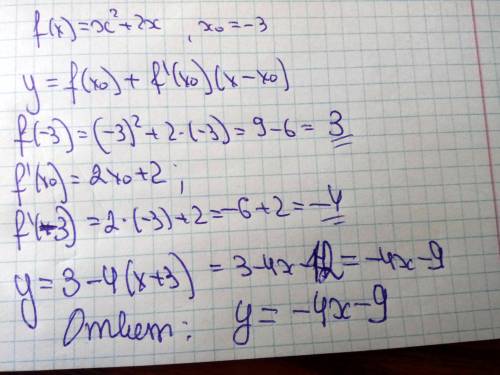 f(x)=x²+2x , x₀=-3
y=f(x₀)+f'(x₀)(x-x₀)
f(-3)=(-3)²+2·(-3)=9-6=3
f'(x₀)=2x₀+2;
f'(-3)=2·(-3)+2=-6+2=-4
y=3-4(x+3)=3-4x-12=-4x-9
Ответ: y=-4x-9